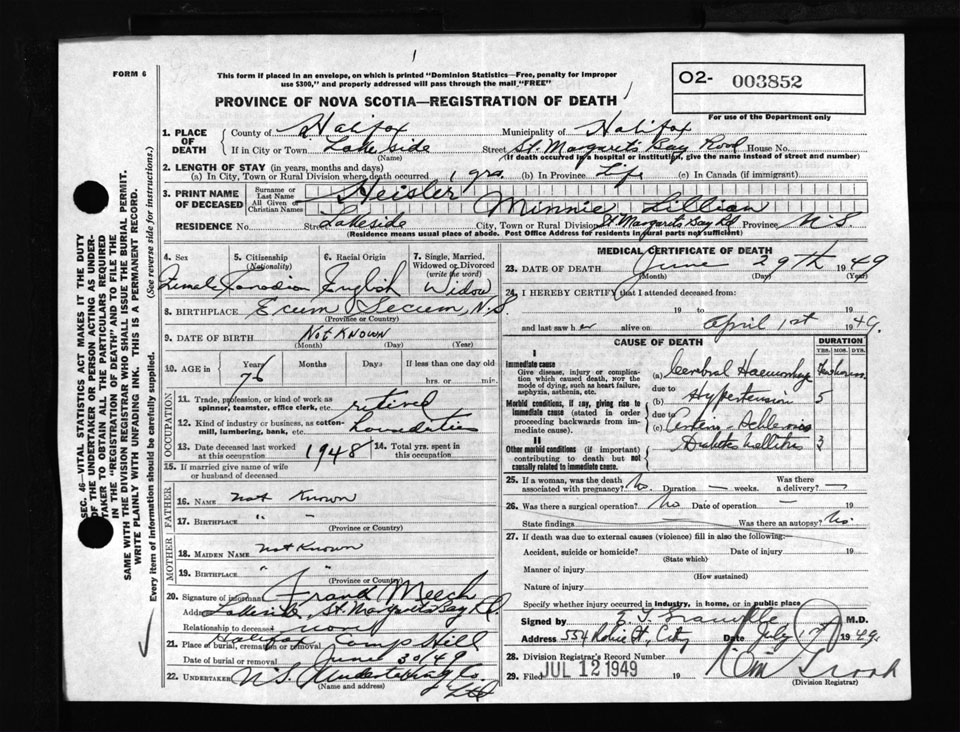 FORM 6
This form if placed in an envelope, on which is printed "Dominion Statistics—Free, penalty for improper
use $300," and properly addressed will pass through the mail "FREE"
O2- 003852
For use of the Department only
PROVINCE OF NOVA SCOTIA—REGISTRATION OF DEATH
1. PLACE OF DEATH
County of Halifax Municipality of Halifax
If in City or Town Lakeside Street St. Margarets Bay Road House No.
(Name) (If death occurred in a hospital or institution, give the name instead of street and number)
2. LENGTH OF STAY (in years, months and days)
(a) In City, Town or Rural Division where death occurred 1 yrs. (b) In Province Life (c) In Canada (if immigrant)
3. PRINT NAME OF DECEASED
Surname or Last Name Heisler
All Given or Christian Names Minnie Lillian
RESIDENCE No. Street Lakeside City, Town or Rural Division St. Margarets Bay Rd. Province N.S.
(Residence means usual place of abode. Post Office Address for residents in rural parts not sufficient)
4. Sex Female
5. Citizenship (Nationality) Canadian
6. Racial Origin English
7. Single, Married, Widowed or Divorced (write the word) Widow
8. BIRTHPLACE Ecum Secum, N.S.
(Province or Country)
9. DATE OF BIRTH Not Known
(Month) (Day) (Year)
10. AGE in Years 76 Months Days If less than one day old
hrs. or min.
OCCUPATION
11. Trade, profession, or kind of work as
spinner, teamster, office clerk, etc. retired
12. Kind of industry or business, as cotton-
mill, lumbering, bank, etc.
13. Date deceased last worked at this occupation 1948
14. Total yrs. spent in this occupation
15. If married give name of wife
or husband of deceased
FATHER
16. NAME not Known
17. BIRTHPLACE " "
(Province or Country)
MOTHER
18. MAIDEN NAME not Known
19. BIRTHPLACE " "
(Province or Country)
20. Signature of informant Frank Meech
Address Lakeside, St. Margarets Bay Rd
Relationship to deceased none
21. Place of burial, cremation or removal Halifax Camp Hill
Date of burial or removal June 30/49
22. UNDERTAKER N.S. Undertaking Co. Ltd
(Name and address)
MEDICAL CERTIFICATE OF DEATH
23. DATE OF DEATH June 29th 1949
(Month) (Day) (Year)
24. I HEREBY CERTIFY that I attended deceased from:
19 to 19
and last saw her alive on April 1st 1949.
CAUSE OF DEATH
DURATION
YRS. MOS. DYS.
I
Immediate cause
Give disease, injury or complication which caused death, not the mode of dying, such as heart failure, asphyxia, asthenia, etc.
(a) Cerebral Haemorrhage
due to
Morbid conditions, if any, giving rise to immediate cause (stated in order proceeding backwards from immediate cause).
(b) Hypertension 5
due to
(c)
II
Other morbid conditions (if important) contributing to death but not causally related to immediate cause.
Diabetes Mellitus
25. If a woman, was the death
associated with pregnancy? No. Duration — weeks. Was there a delivery? —
26. Was there a surgical operation? No Date of operation — 19
State findings — Was there an autopsy? No.
27. If death was due to external causes (violence) fill in also the following:
Accident, suicide or homicide? Date of injury 19
(State which)
Manner of injury
(How sustained)
Nature of injury
Specify whether injury occurred in industry, in home, or in public place
Signed by M.D.
Address 554 Robie St, City Date July 1st 1949.
28. Division Registrar's Record Number
29. Filed JUL 12 1949 19
(Division Registrar)
SEC. 46—VITAL STATISTICS ACT MAKES IT THE DUTY
OF THE UNDERTAKER OR PERSON ACTING AS UNDER-
TAKER TO OBTAIN ALL THE PARTICULARS REQUIRED
IN THE "REGISTRATION OF DEATH" AND TO FILE THE
SAME WITH THE DIVISION REGISTRAR WHO SHALL ISSUE THE BURIAL PERMIT.
WRITE PLAINLY WITH UNFADING INK. THIS IS A PERMANENT RECORD.
Every item of information should be carefully supplied. (See reverse side for instructions.)